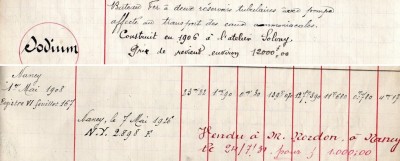 Bateau Fer à deux réservoirs tubulaires avec pompe
affecté au transport des eaux ammoniacales.
Sodium
Construit en 1906 à l'atelier Solvay.
Prix de revient environ 12000,00
Nancy
1er Mai 1908
Registre VI feuillet 167
Nancy, le 7 Mai 1926
N.Y. 2898 F.
Vendu à M. à Nancy
le 24/7/31 pour 1.000,00